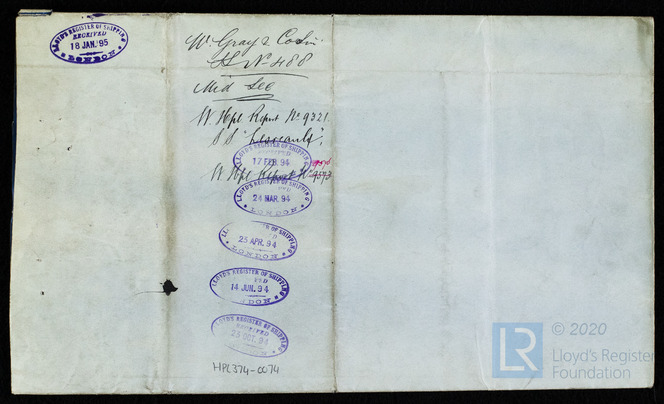 LLOYD'S REGISTER OF SHIPPING
RECEIVED
18 JAN. 95
LONDON
W. Gray & Co Lim
S No 488
Mid Sec
W Hpl Report No 9321
S.S.
LLOYD'S REGISTER OF SHIPPING
17 FEB. 94
W Hpl Report No
LLOYD'S REGISTER OF SHIPPING
24 MAR. 94
LONDON
LLOYD'S REGISTER OF SHIPPING
25 APR. 94
LONDON
LLOYD'S REGISTER OF SHIPPING
14 JUN. 94
LONDON
LLOYD'S REGISTER OF SHIPPING
RECEIVED
OCT. 94
LONDON
HPL374-0074
LR
© 2020
Lloyd's Register
Foundation